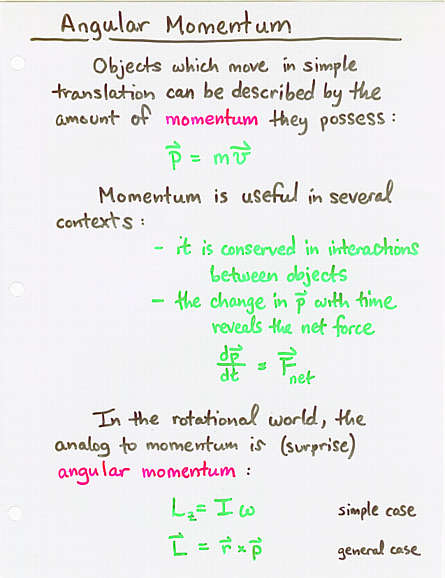 Angular Momentum
Objects which move in simple
translation can be described by the
amount of momentum they possess:
p⃗ = mv⃗
Momentum is useful in several
contexts:
- it is conserved in interactions
between objects
- the change in p⃗ with time
reveals the net force
dp⃗/dt = F⃗net
In the rotational world, the
analog to momentum is (surprise)
angular momentum:
L_z = I ω simple case
L⃗ = r⃗ × p⃗ general case